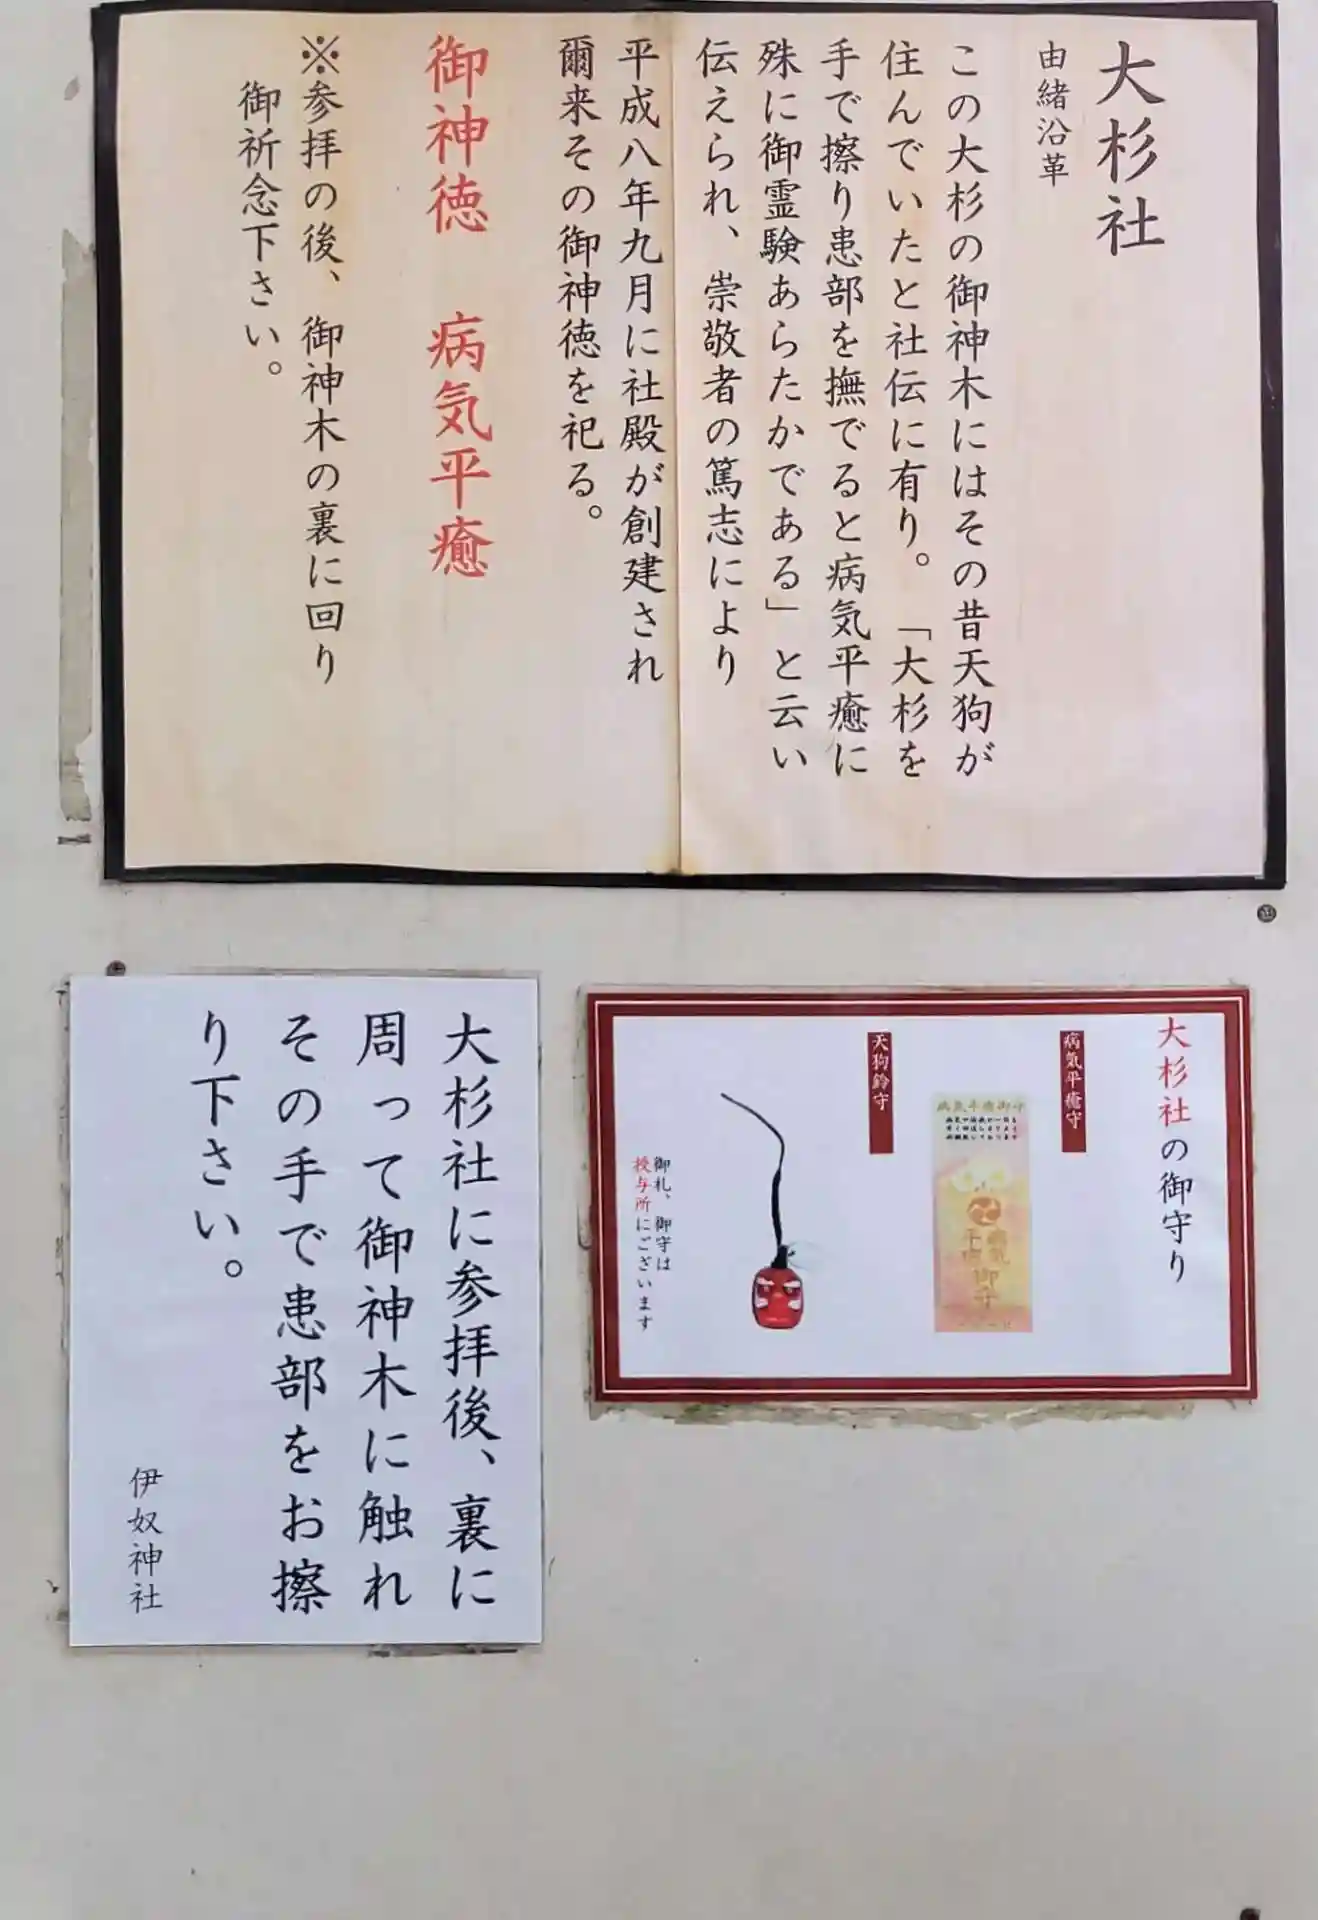 大杉社
由緒沿革
この大杉の御神木にはその昔天狗が
住んでいたと社伝に有り。「大杉を
手で擦り患部を撫でると病気平癒に
殊に御霊験あらたかである」と云い
伝えられ、崇敬者の篤志により
平成八年九月に社殿が創建され
爾来その御神徳を祀る。
御神徳　病気平癒
※参拝の後、御神木の裏に回り
御祈念下さい。
大杉社の御守り
病気平癒守
病気平癒御守
病気
平癒
御守
天狗鈴守
御札、御守は
授与所にございます
大杉社に参拝後、裏に
周って御神木に触れ
その手で患部をお擦
り下さい。
伊奴神社